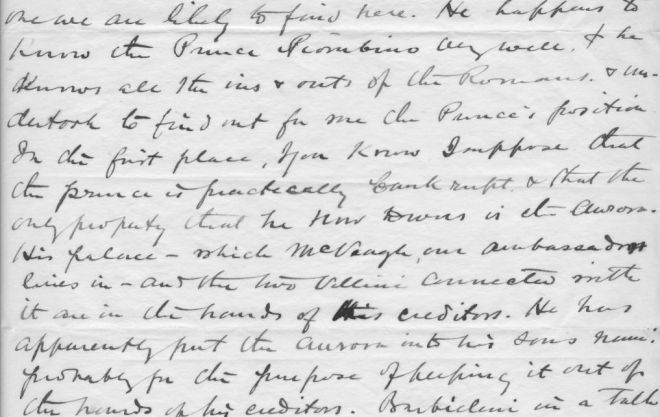 one we are likely to find here. He happens to
know the Prince Piombino very well, & he
knows all the ins & outs of the Romans. & un-
dertook to find out for me the Prince's position
In the first place, you know I suppose that
the prince is practically bankrupt. & that the
only property that he now owns is the Aurora.
His palace - which McVeagh, our ambassador
lives in - and the two Villini connected with
it are in the hands of his creditors. He has
apparently put the Aurora into his son's name.
probably for the purpose of keeping it out of
the hands of his creditors. in a talk